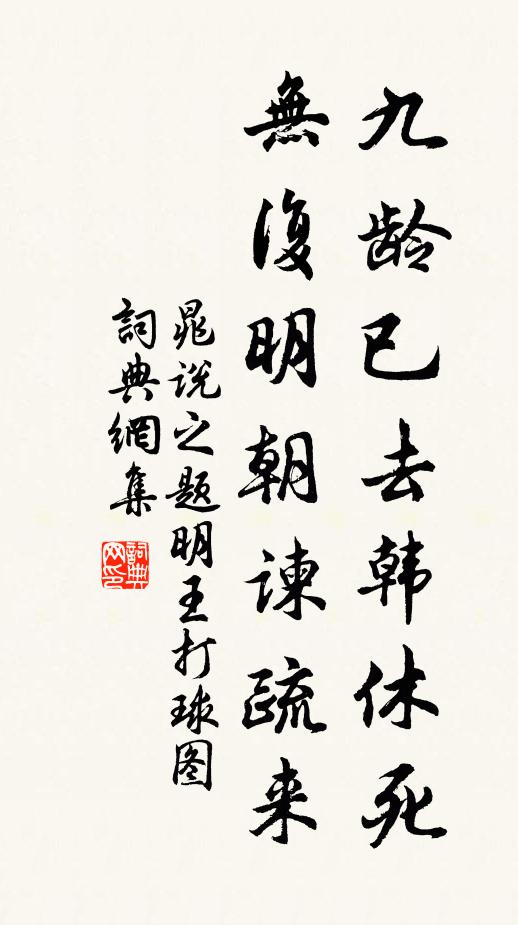 九龄已去韩休死
無復明朝諫疏来
晁说之题明王打球图
詞典網集
詞典网印